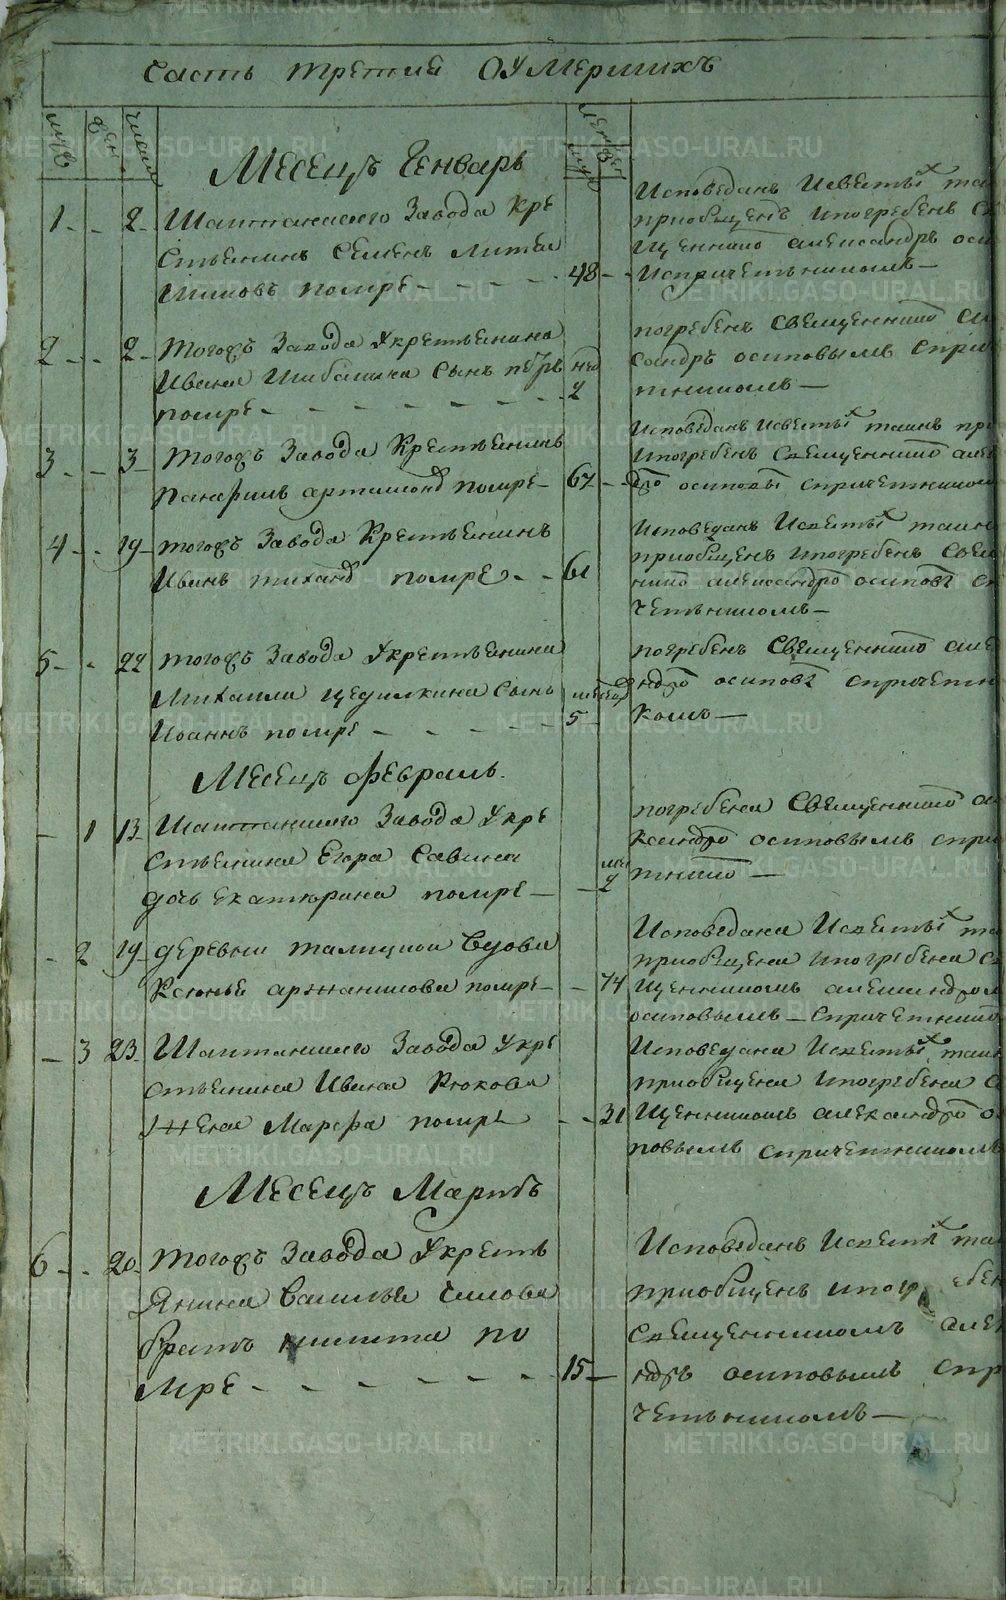 Часть третия О Умершихъ
Месецъ Генварь
1 2 Шайтанскаго Завода Кре
стьенинъ Семенъ
помре 48
Исповеданъ Исветых таи
приобщенъ Ипогребенъ Св
щенникомъ александръ оси
Испричетникомъ
2 2 тогожъ Завода Укрестьенина
Ивана Сынъ петръ
помре 2
погребенъ Священнико але
сандръ осиповымъ сприч
тникомъ
3 3 тогожъ Завода Крестьенинъ
Панфилъ помре 67
Исповеданъ Исветых таинъ при
Ипогребенъ Священнико алек
дро осиповы спричетникомъ
4 19 тогожъ Завода Крестьенинъ
Иванъ помре 61
Исповеданъ Исветых таин
приобщенъ Ипогребенъ Свещ
нико александро осипов сп
четникомъ
5 22 тогожъ Завода Укрестьенина
Михаила Сынъ
Иоаннъ помре 5
погребенъ Священнико але
ндро осипов спричетн
комъ
Месецъ Февраль
1 13 Шайтанскаго Завода Укре
стьенина Егора Савина
дочь екатирина помре 2
погребена Священнико але
ксандро осиповымъ спри
тнико
2 19 деревни талицкой Вдова
Ксенье помре 74
Исповедана Исветых та
приобщена Ипогребена С
щенникомъ александром
осиповымъ спричетнико
3 23 Шайтанскаго Завода Укре
стьенина Ивана Крюкова
жена Марфа помре 31
Исповедана Исветых таи
приобщена Ипогребена С
щенникомъ александро о
повымъ спричетникомъ
Месецъ Мартъ
6 20 тогожъ Завода Укресть
янина Василья
братъ никита по
мре 15
Исповеданъ Исветых та
приобщенъ ипогребен
Священникомъ але
ндръ осиповымъ спр
четникомъ
METRIKI.GASO-URAL.RU